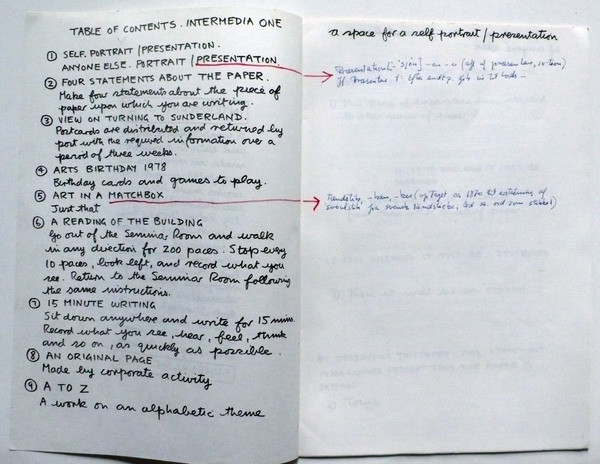 TABLE OF CONTENTS. INTERMEDIA ONE
① SELF. PORTRAIT / PRESENTATION.
ANYONE ELSE. PORTRAIT / PRESENTATION
② FOUR STATEMENTS ABOUT THE PAPER.
Make four statements about the piece of
paper upon which you are writing.
③ VIEW ON TURNING TO SUNDERLAND.
Postcards are distributed and returned by
post with the required information over a
period of three weeks.
④ ARTS BIRTHDAY 1978
Birthday cards and games to play.
⑤ ART IN A MATCHBOX
Just that
⑥ A READING OF THE BUILDING
Go out of the Seminar Room and walk
in any direction for 200 paces. Stop every
10 paces, look left, and record what you
see. Return to the Seminar Room following
the same instructions.
⑦ 15 MINUTE WRITING
Sit down anywhere and write for 15 mins.
Record what you see, hear, feel, think
and so on, as quickly as possible.
⑧ AN ORIGINAL PAGE
Made by corporate activity
⑨ A TO Z
A work on an alphabetic theme
a space for a self portrait / presentation